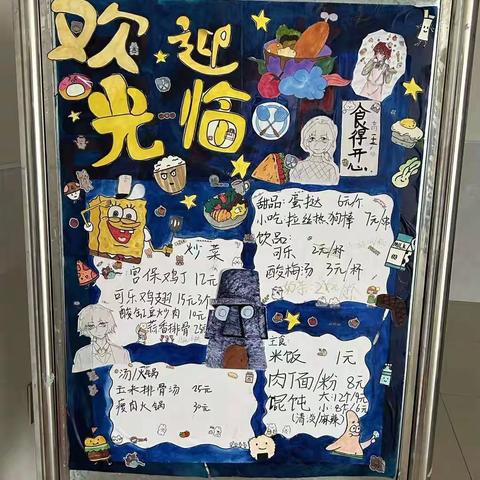 欢迎
光临
食得开心
甜品：蛋挞 6元/个
小吃：拉丝热狗棒 7元/串
饮品：
可乐 2元/杯
酸梅汤 3元/杯
炒菜
宫保鸡丁 12元
可乐鸡翅 15元3个
酸缸豆炒肉 10元
蒜香排骨
主食：
米饭 1元
肉丁面/粉 8元
馄饨 大：12个/9元
小：8个/6元
(清汤/麻辣)
汤/火锅
玉米排骨汤 25元
瘦肉火锅 30元